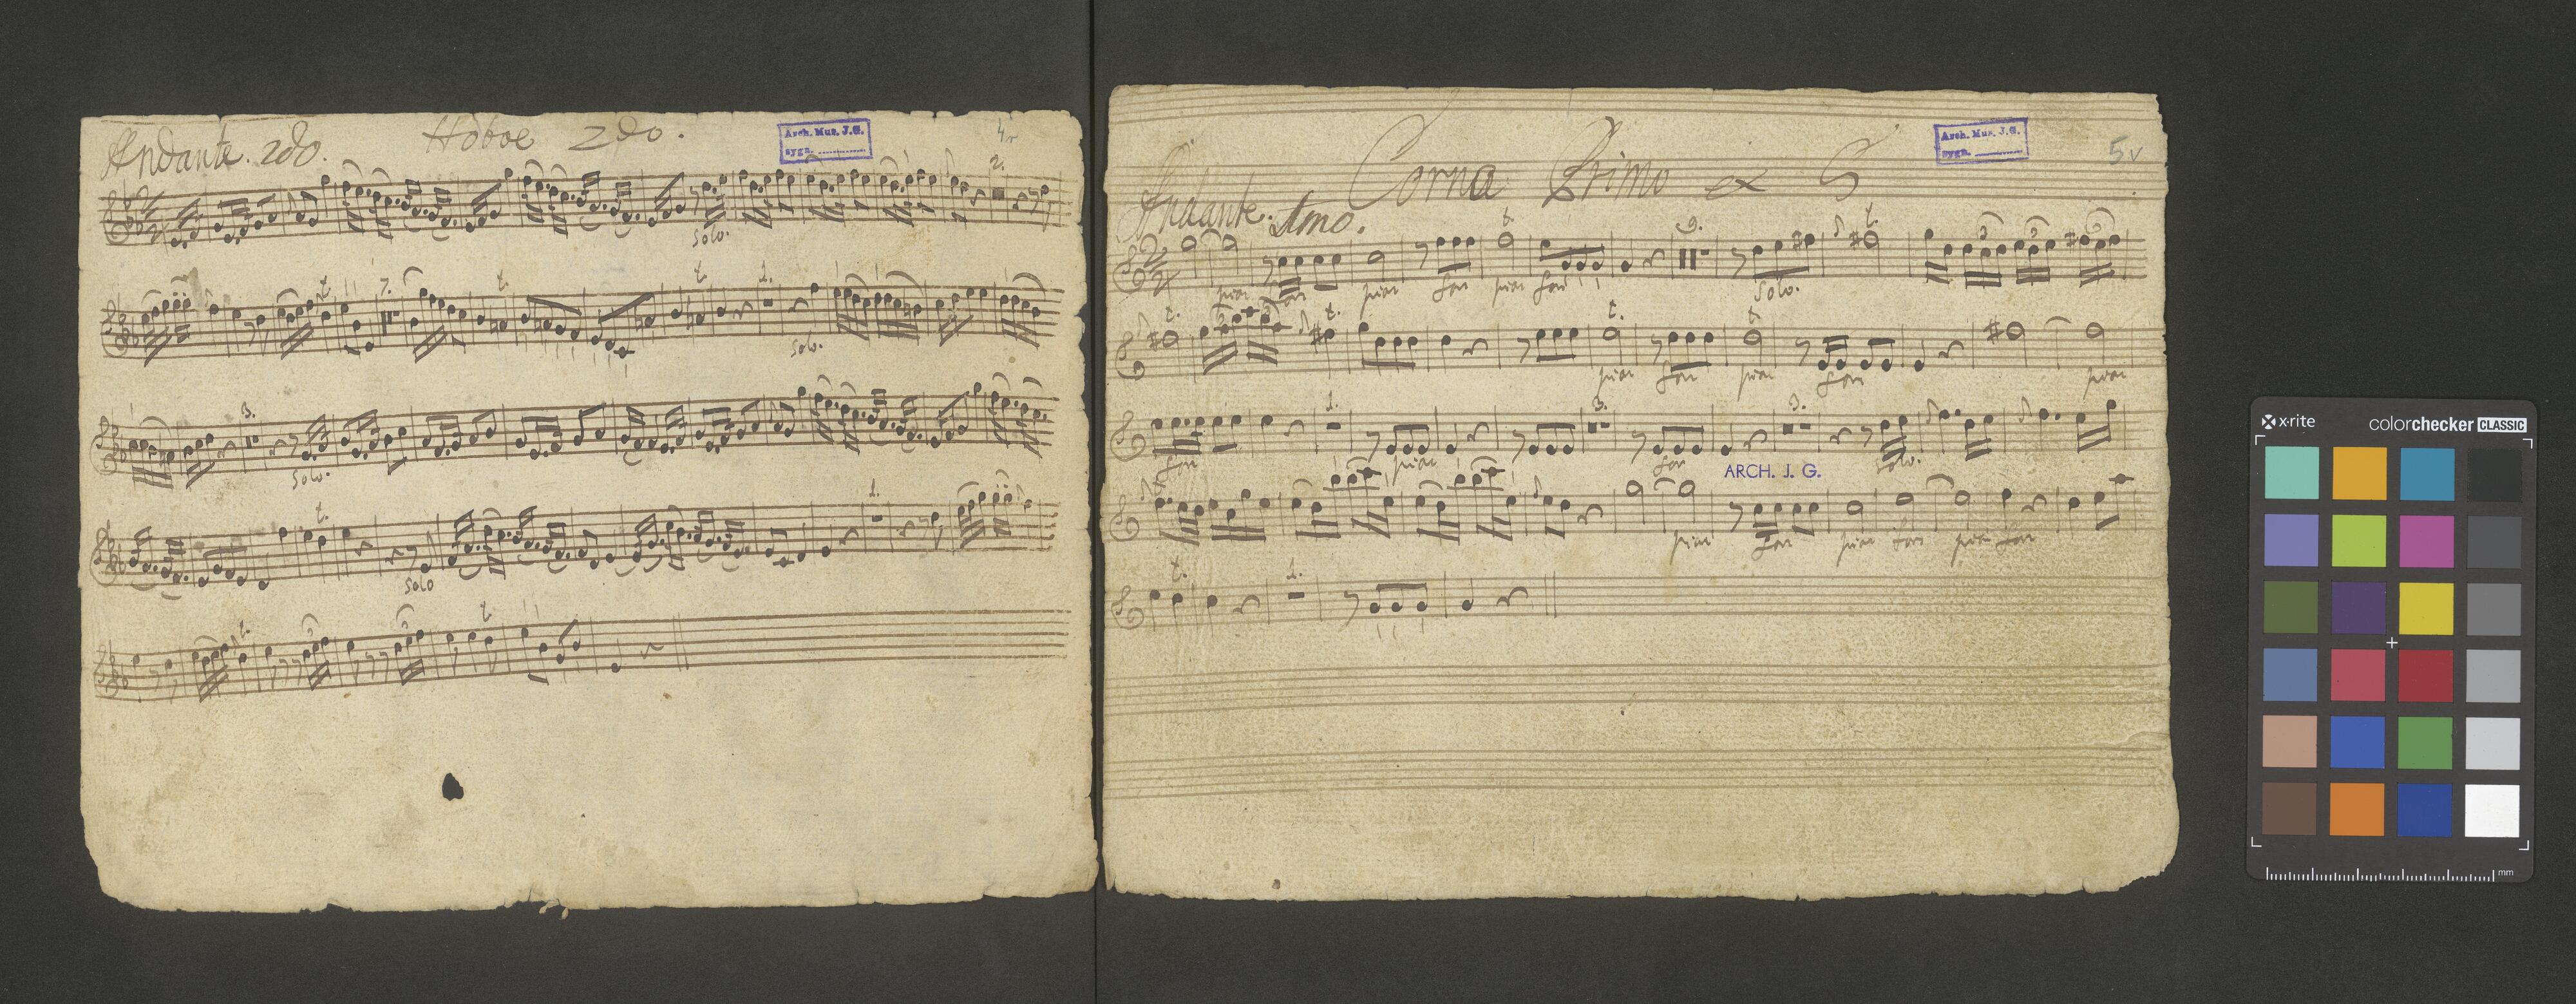 Andante. 2do. Hoboe 2do.
Arch. Mus. J.G.
sygn. ............
4r
solo. 2.
t. 7. t. t. 1.
solo.
3.
solo.
t. 1.
solo
t. 3 3 t.
Corno Primo ex G
Arch. Mus. J.G.
sygn. ............
5v
Andante. 1mo.
t. 9. t. 3 3 3
pian for pian for pian for solo.
t. t. t. t.
pian for pian for pian
1. 3. 3.
for pian for solo.
ARCH. J. G.
pian for pian for pian for
t. 1.
x-rite
colorchecker CLASSIC
mm